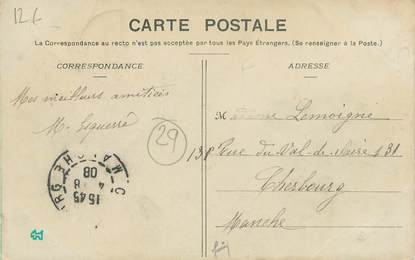 12 f
CARTE POSTALE
La Correspondance au recto n'est pas acceptée par tous les Pays Étrangers. (Se renseigner à la Poste.)
CORRESPONDANCE
ADRESSE
Mes meilleurs amitiés
M. Esquerré
29
M Lemoigne
Rue du Val-de-Saire 131
Cherbourg
Manche
15 45
08